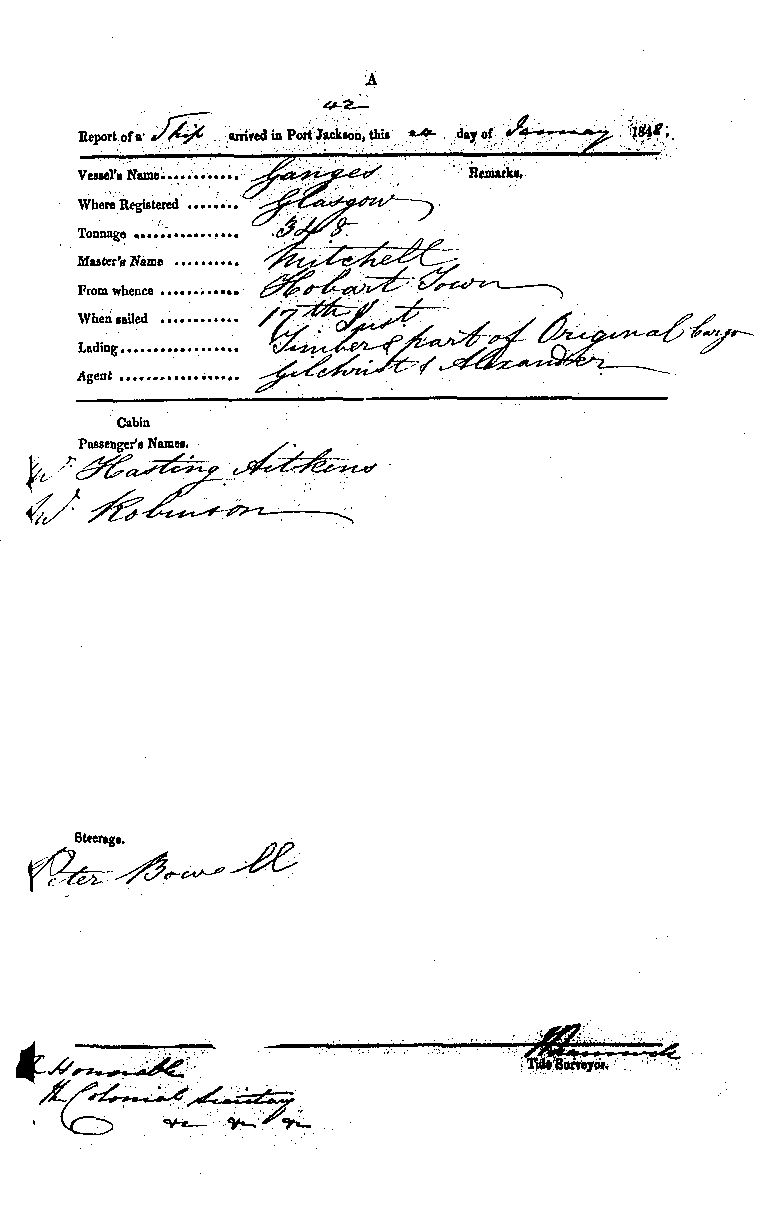 A
42
Report of a Ship arrived in Port Jackson, this 24 day of January 1848.
Vessel's Name............ Ganges Remarks.
Where Registered ........ Glasgow
Tonnage ................ 348
Master's Name .......... Mitchell
From whence ............ Hobart Town
When sailed ............ 17th Inst
Lading.................. Timber & part of Original Cargo
Agent .................. Gilchrist & Alexander
Cabin
Passenger's Names.
Hasting Aitkens
Robinson
Steerage.
Peter Bowell
Tide Surveyor.
Honorable
The Colonial Secretary
&c &c &c